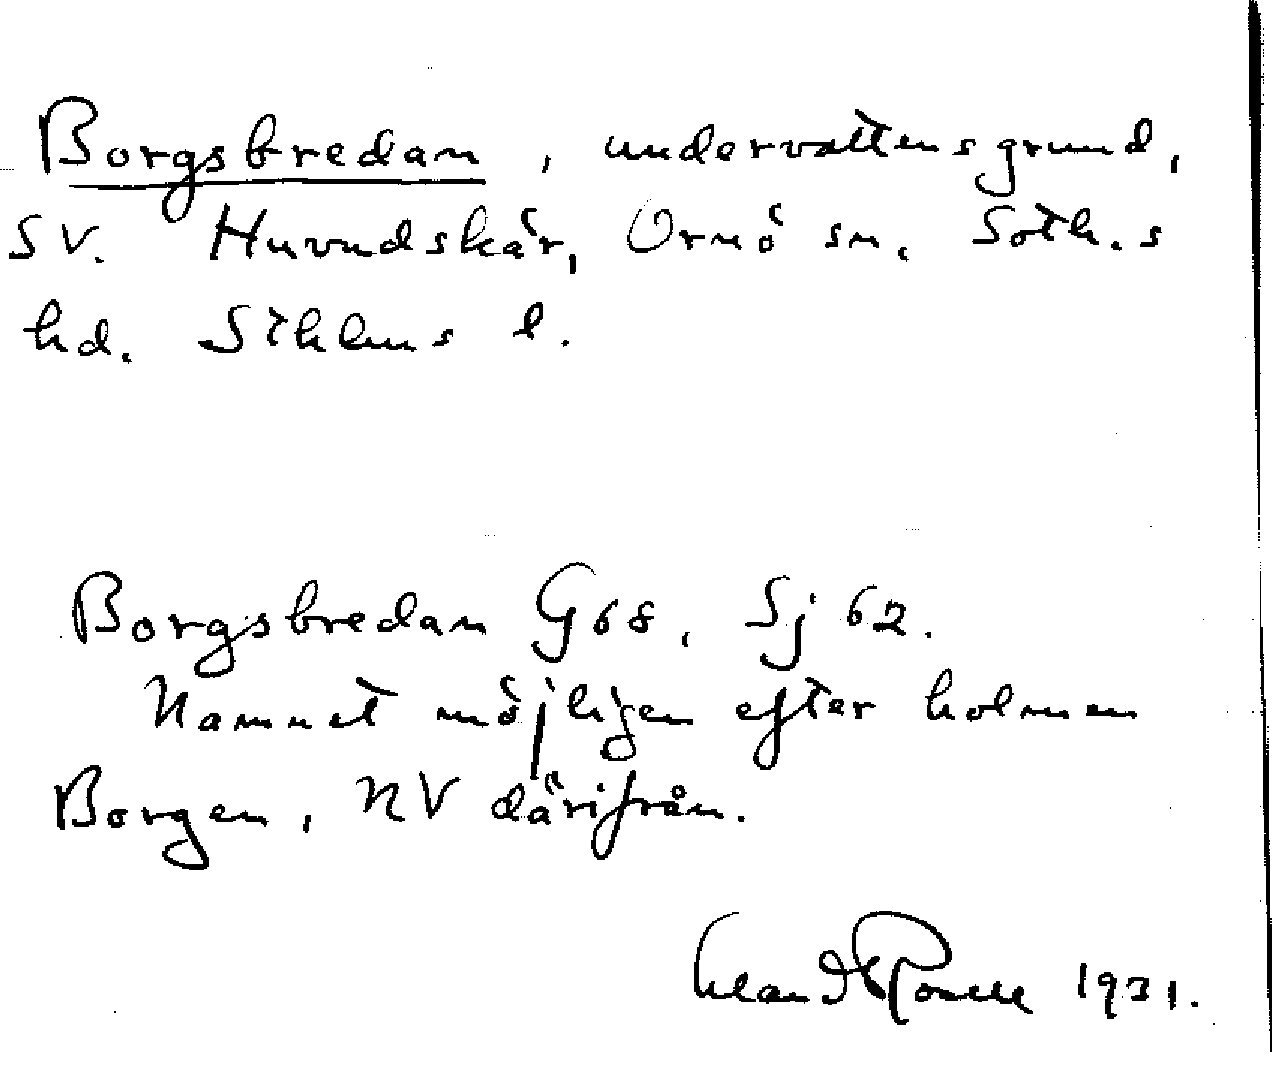 Borgsbredan, undervattensgrund,
SV. Huvudskär, Ornö sn. Soth.s
hd. Sthlms l.
Borgsbredan G68, Sj 62.
Namnet möjligen efter holmen
Borgen, NV därifrån.
1931.